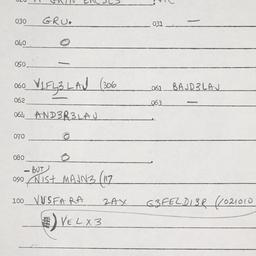 030 GRU. 031 —
040 0
050 —
060 V1FL3LAJ (306 061 BAJD3LAJ
062 — 063 —
064 AND3R3LAJ
070 0
080 0
— BUT
090 /NIST MAJN3 (117
100 VUSFARA 2AX G3FELDI3R (/021010
) VELX3